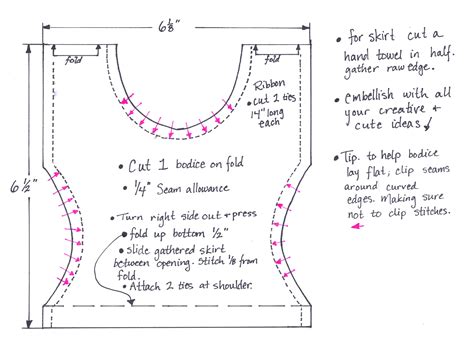 6⅛"
fold
fold
Ribbon
• cut 2 ties
14" long
each
• Cut 1 bodice on fold
6½"
• ¼" Seam allowance
• Turn right side out + press
• fold up bottom ½"
• slide gathered skirt
between opening. Stitch ⅛ from
fold.
• Attach 2 ties at shoulder.
• for skirt cut a
hand towel in half.
gather raw edge.
• embellish with all
your creative +
cute ideas!
• Tip. to help bodice
lay flat, clip seams
around curved
edges. Making sure
not to clip stitches.